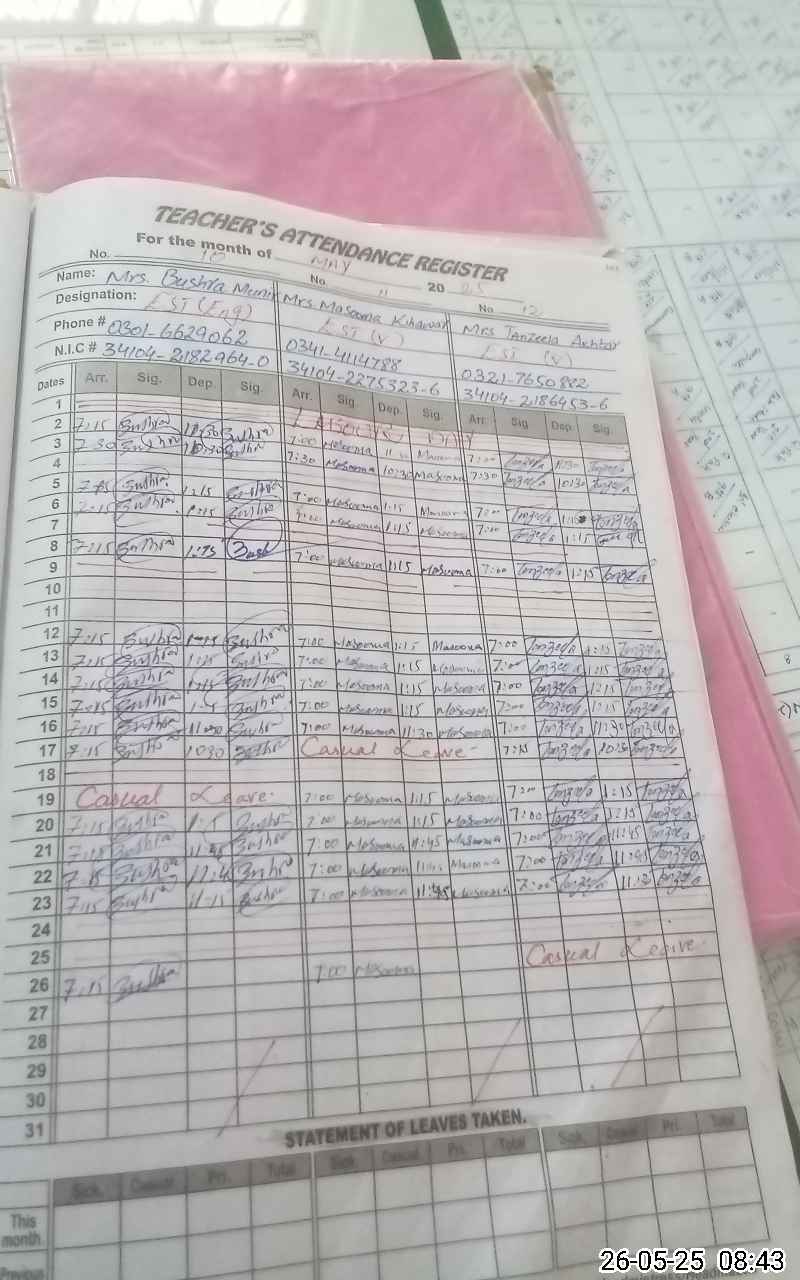 TEACHER'S ATTENDANCE REGISTER
For the month of MAY 20 25
No. 10 No. 11 No. 12
Name: Mrs. Bushra Munir Mrs. Masooma Mrs Tanzeela Akhtar
Designation: EST (Eng) EST (V) EST (V)
Phone # 0301-6629062 0341-4114788 0321-7650882
N.I.C # 34104-2182964-0 34104-2275323-6 34104-2186453-6
Dates Arr. Sig. Dep. Sig. Arr. Sig. Dep. Sig. Arr. Sig. Dep. Sig.
1 LABOUR DAY
2 7:15 Bushra 11:30 Bushra 7:00 Masooma Masooma 7:00 Tanzeela 11:30 Tanzeela
3 7:30 Bushra 10:30 Bushra 7:30 Masooma 10:30 Masooma 7:30 Tanzeela 10:30 Tanzeela
4
5 7:15 Bushra 1:15 Bushra 7:00 Masooma 1:15 Masooma 7:00 Tanzeela 1:15 Tanzeela
6 7:15 Bushra 1:15 Bushra 7:00 Masooma 1:15 Masooma 7:00 Tanzeela 1:15 Tanzeela
7
8 7:15 Bushra 1:15 Bush 7:00 Masooma 1:15 Masooma 7:00 Tanzeela 1:15 Tanzeela
9
10
11
12 7:15 Bushra 1:15 Bushra 7:00 Masooma 1:15 Masooma 7:00 Tanzeela 1:15 Tanzeela
13 7:15 Bushra 1:15 Bushra 7:00 Masooma 1:15 Masooma 7:00 Tanzeela 1:15 Tanzeela
14 7:15 Bushra 1:15 Bushra 7:00 Masooma 1:15 Masooma 7:00 Tanzeela 1:15 Tanzeela
15 7:15 Bushra Bushra 7:00 Masooma 1:15 Masooma 7:00 Tanzeela 1:15 Tanzeela
16 7:15 Bushra 11:30 Bushra 7:00 Masooma 11:30 Masooma 7:00 Tanzeela 11:30 Tanzeela
17 7:15 Bushra 10:30 Bushra Casual Leave 7:15 Tanzeela 10:30 Tanzeela
18
19 Casual Leave. 7:00 Masooma 1:15 Masooma 7:00 Tanzeela 1:15 Tanzeela
20 7:15 Bushra 1:15 Bushra 7:00 Masooma 1:15 Masooma 7:00 Tanzeela 1:15 Tanzeela
21 7:15 Bushra 11:45 Bushra 7:00 Masooma 11:45 Masooma 7:00 Tanzeela 11:45 Tanzeela
22 7:15 Bushra 11:45 Bushra 7:00 Masooma 11:45 Masooma 7:00 Tanzeela 11:45 Tanzeela
23 7:15 Bushra Bushra 7:00 Masooma Masooma 7:00 Tanzeela 11:30 Tanzeela
24
25
26 7:15 Bushra 7:00 Masooma Casual Leave
27
28
29
30
31
STATEMENT OF LEAVES TAKEN.
Sick. Casual Pri. Total Sick. Casual Pri. Total Sick. Casual Pri. Total
This month.
Previous
26-05-25 08:43